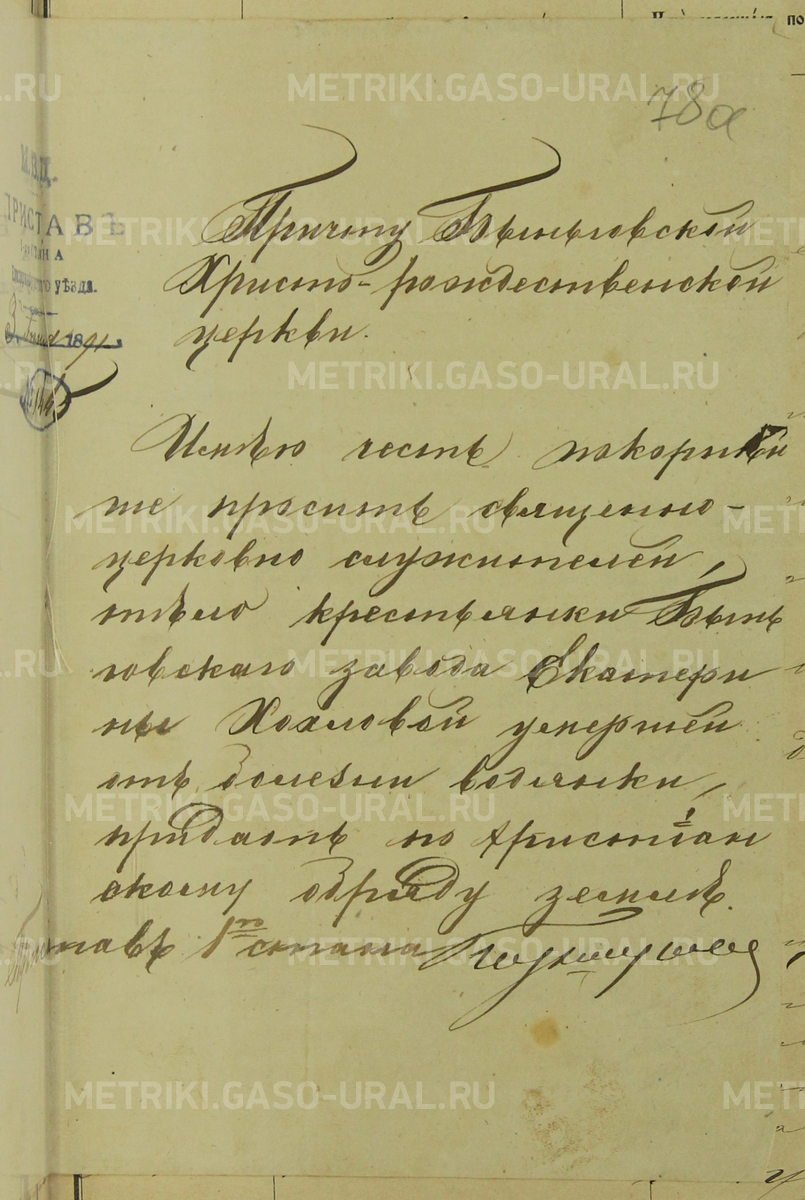 78а
М.В.Д.
ПРИСТАВЪ
уѣзда.
1891
Причту Быньговской
Христо-рождественской
церкви.
Имѣю честь покорнѣй
ше просить священно-
церковно служителей,
тѣло крестьянки Бынь
говскаго завода Екатери
ны Хохловой умершей
отъ болезни водянки,
придать по христіан
скому обряду землѣ.
Приставъ 1го стана
METRIKI.GASO-URAL.RU